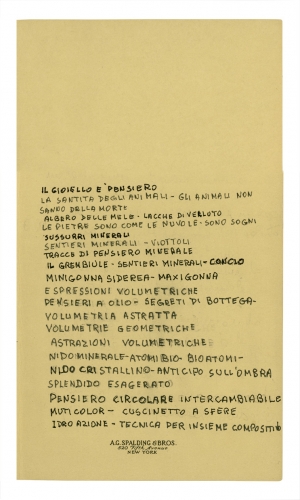 IL GIOIELLO E' PENSIERO
LA SANTITA DEGLI ANIMALI - GLI ANIMALI NON
SANNO DELLA MORTE
ALBERO DELLE MELE - LACCHE DI VELLUTO
LE PIETRE SONO COME LE NUVOLE - SONO SOGNI
SUSSURRI MINERALI
SENTIERI MINERALI - VIOTTOLI
TRACCE DI PENSIERO MINERALE
IL GREMBIULE - SENTIERI MINERALI -
MINIGONNA SIDEREA - MAXIGONNA
ESPRESSIONI VOLUMETRICHE
PENSIERI A OLIO - SEGRETI DI BOTTEGA -
VOLUMETRIA ASTRATTA
VOLUMETRIE GEOMETRICHE
ASTRAZIONI VOLUMETRICHE
NIDO MINERALE - ATOMI BIO - BIOATOMI -
NIDO CRISTALLINO - ANTICIPO SULL'OMBRA
SPLENDIDO ESAGERATO
PENSIERO CIRCOLARE INTERCAMBIABILE
MUTICOLOR - CUSCINETTO A SFERE
IDROAZIONE - TECNICA PER INSIEME COMPOSITIVO
A.G. SPALDING & BROS.
520 Fifth Avenue
NEW YORK